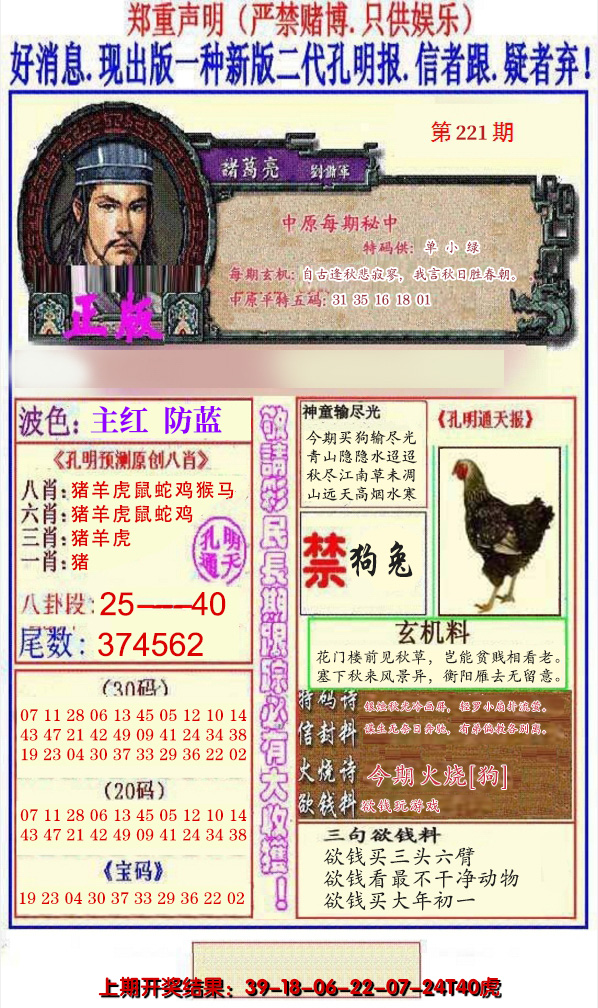 郑重声明（严禁赌博.只供娱乐）
好消息.现出版一种新版二代孔明报.信者跟.疑者弃!
第 221 期
諸葛亮 劉備軍
中原每期秘中
特码供: 单 小 绿
每期玄机: 自古逢秋悲寂寥，我言秋日胜春朝。
中原平特五码: 31 35 16 18 01
正版
波色: 主红 防蓝
《孔明预测原创八肖》
八肖: 猪羊虎鼠蛇鸡猴马
六肖: 猪羊虎鼠蛇鸡
三肖: 猪羊虎
一肖: 猪
孔明
通天
八卦段: 25——40
尾数: 374562
（30码）
07 11 28 06 13 45 05 12 10 14
43 47 21 42 49 09 41 24 34 38
19 23 04 30 37 33 29 36 22 02
（20码）
07 11 28 06 13 45 05 12 10 14
43 47 21 42 49 09 41 24 34 38
《宝码》
19 23 04 30 37 33 29 36 22 02
敬請彩民長期跟踪必有大收獲！
神童输尽光
今期买狗输尽光
青山隐隐水迢迢
秋尽江南草未凋
山远天高烟水寒
《孔明通天报》
禁 狗兔
玄机料
花门楼前见秋草，岂能贫贱相看老。
塞下秋来风景异，衡阳雁去无留意。
特码诗 银烛秋光冷画屏，轻罗小扇扑流萤。
信封料 谋生无奈日奔驰，有弟偏教各别离。
火烧诗 今期火烧[狗]
欲钱料 欲钱玩游戏
三句欲钱料
欲钱买三头六臂
欲钱看最不干净动物
欲钱买大年初一
上期开奖结果：39-18-06-22-07-24T40虎